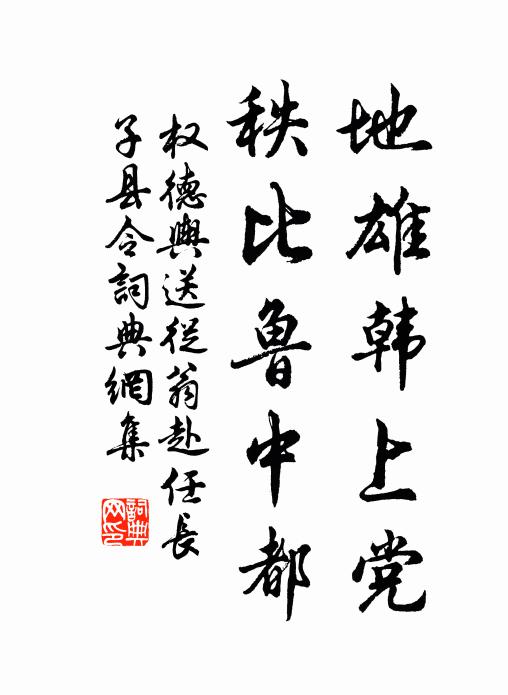 地雄韩上党
秩比鲁中都
权德輿送従翁赴任長
子县令詞典網集
詞典
网印